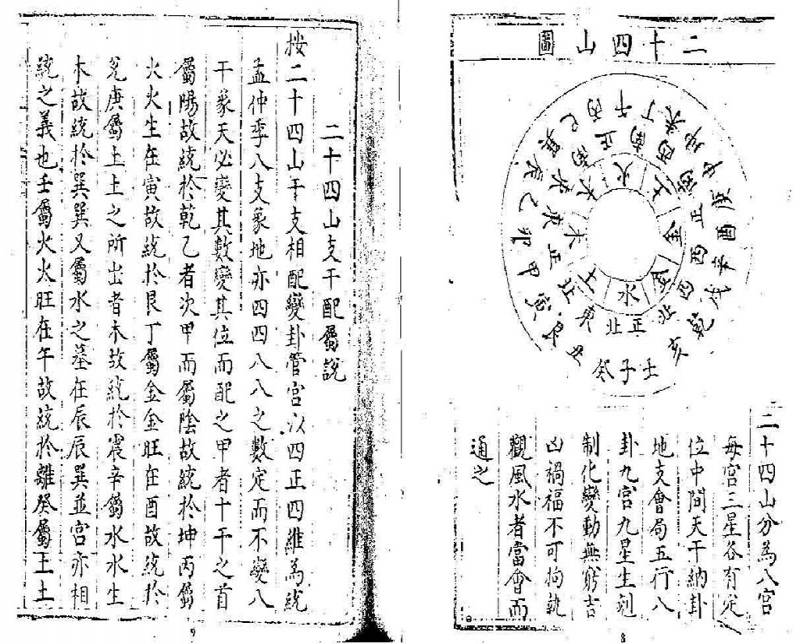 二十四山圖
壬子癸丑艮寅甲卯乙辰巽巳丙午丁未坤申庚酉辛戌乾亥
正北
東北
正東
東南
正南
西南
正西
西北
水土木木火土金金
二十四山分為八宮
每宮三星各有定
位中間天干納卦
地支會局五行八
卦九宮九星生剋
制化變動無窮吉
凶禍福不可拘執
觀風水者當會而
通之
8
二十四山支干配屬說
按二十四山干支相配變卦管宮以四正四維為統
孟仲季八支象地亦四四八八之數定而不變八
干象天必變其數變其位而配之甲者十干之首
屬陽故統於乾乙者次甲而屬陰故統於坤丙屬
火火生在寅故統於艮丁屬金金旺在酉故統於
兌庚屬土土之所出者木故統於震辛屬水水生
木故統於巽巽又屬水之墓在辰辰巽並宮亦相
統之義也壬屬火火旺在午故統於離癸屬土土
9